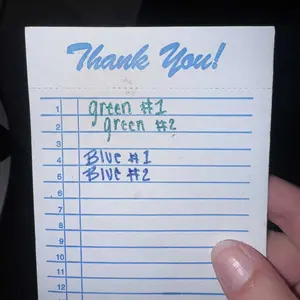 Thank You!
1 green #1
2 green #2
3
4 Blue #1
5 Blue #2
6
7
8
9
10
11
12